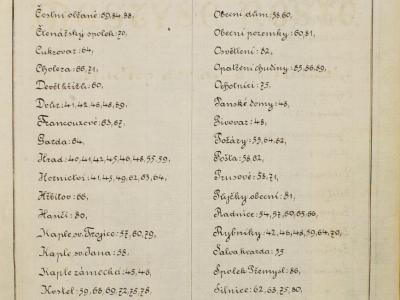 Čestní občané: 69, 84, 88,
Čtenářský spolek: 70,
Cukrovar: 64,
Cholera: 66, 71,
Devět křížů: 60,
Dvůr: 41, 42, 46, 48, 69,
Francouzové: 63, 67,
Garda: 64,
Hrad: 40, 41, 42, 45, 46, 48, 55, 59,
Hornictví: 41, 45, 49, 62, 63, 64,
Hřbitov: 66,
Hasiči: 80,
Kaple sv. Trojice: 57, 60, 79,
Kaple sv. Jana: 58,
Kaple zámecká: 45, 46,
Kostel: 59, 68, 69, 72, 75, 78,
Obecní dům: 58, 60,
Obecní pozemky: 60, 81,
Osvětlení: 82,
Opatření chudiny: 85, 86, 89,
Ochotníci: 75,
Panské domy: 48,
Pivovar: 48,
Požáry: 55, 64, 82,
Pošta: 58, 82,
Prusové: 58, 71,
Půjčky obecní: 81,
Radnice: 54, 57, 60, 65, 66,
Rybníky: 42, 46, 48, 59, 64, 70,
Salvakvarda: 55
Spolek Přemysl: 86,
Silnice: 62, 63, 75, 80,